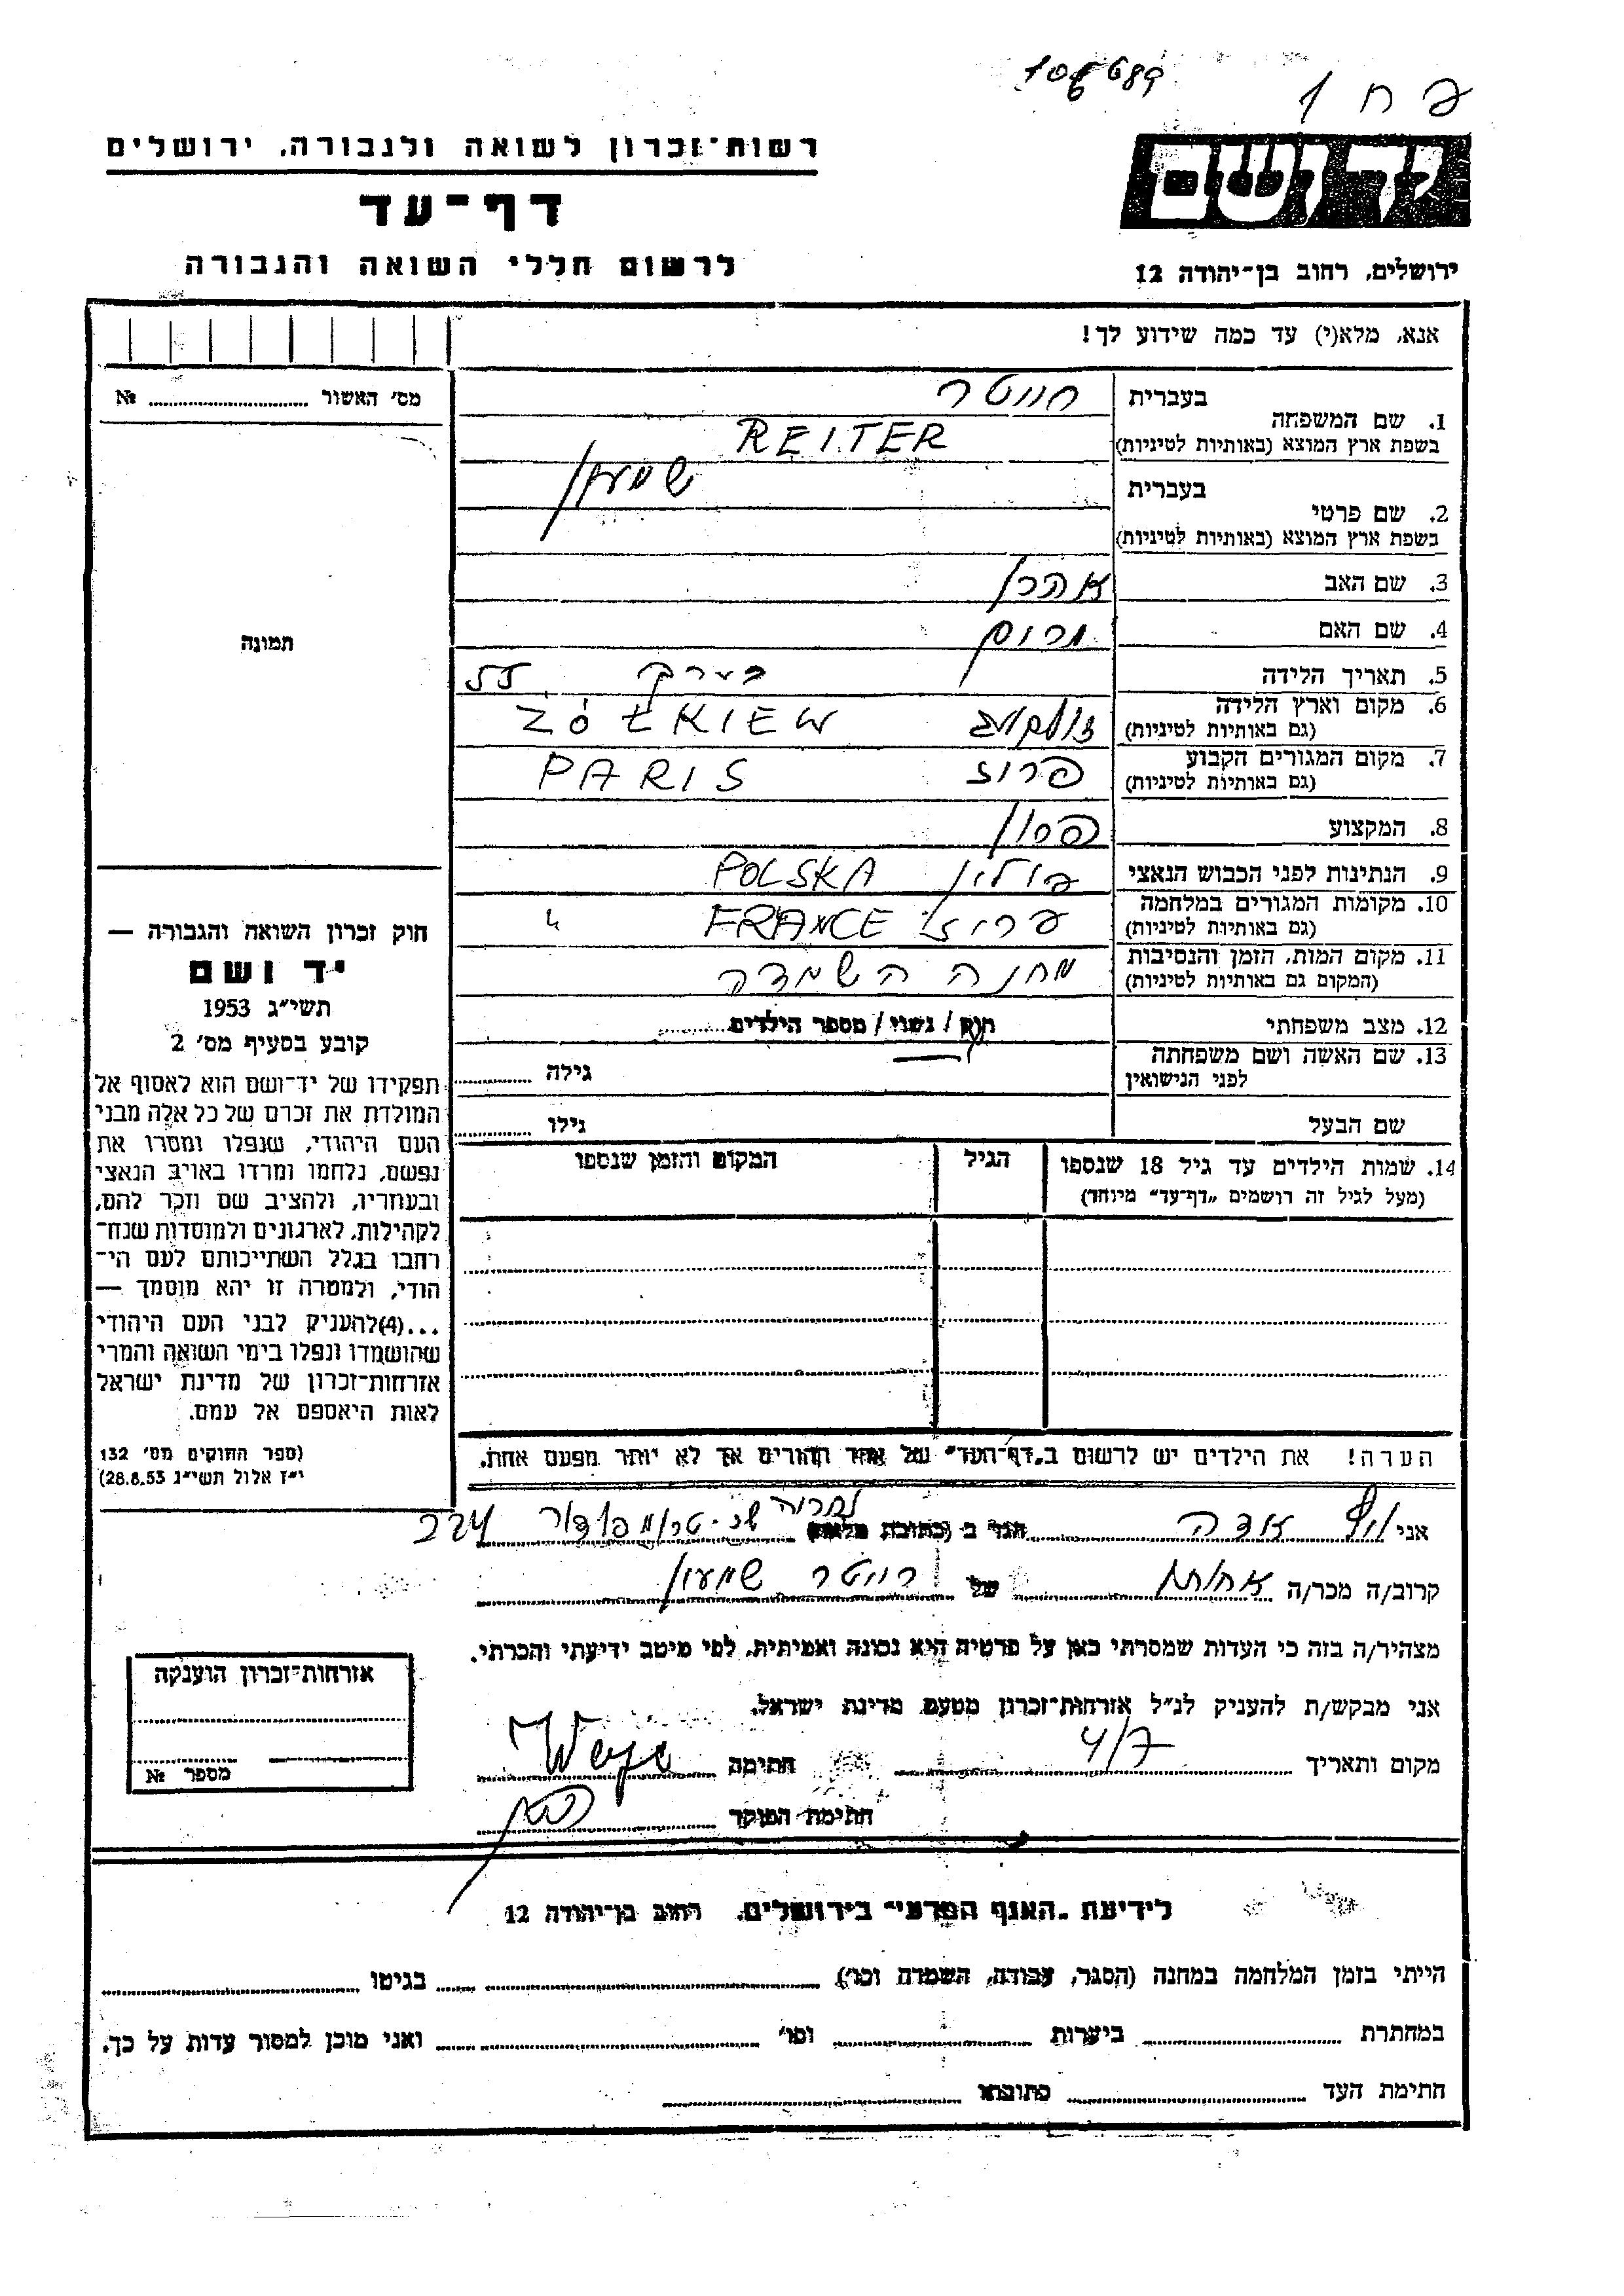 פ ח 1
רשות־זכרון לשואה ולגבורה, ירושלים
יד ושם
דף־עד
לרשום חללי השואה והגבורה
ירושלים, רחוב בן־יהודה 12
אנא, מלא(י) עד כמה שידוע לך!
מס׳ האשור №
בעברית
1. שם המשפחה
בשפת ארץ המוצא (באותיות לטיניות) REITER
בעברית שמעון
2. שם פרטי
בשפת ארץ המוצא (באותיות לטיניות)
3. שם האב אהרן
4. שם האם
תמונה
5. תאריך הלידה בערך
6. מקום וארץ הלידה ZÓŁKIEW
(גם באותיות לטיניות)
7. מקום המגורים הקבוע PARIS
(גם באותיות לטיניות)
8. המקצוע
9. הנתינות לפני הכבוש הנאצי פולין POLSKA
10. מקומות המגורים במלחמה FRANCE
(גם באותיות לטיניות)
11. מקום המות, הזמן והנסיבות מחנה השמדה
(המקום גם באותיות לטיניות)
12. מצב משפחתי רווק / נשוי / מספר הילדים
13. שם האשה ושם משפחתה
לפני הנישואין גילה
שם הבעל גילו
14. שמות הילדים עד גיל 18 שנספו הגיל המקום והזמן שנספו
(מעל לגיל זה רושמים „דף־עד״ מיוחד)
חוק זכרון השואה והגבורה —
יד ושם
תשי״ג 1953
קובע בסעיף מס׳ 2
תפקידו של יד־ושם הוא לאסוף אל
המולדת את זכרם של כל אלה מבני
העם היהודי, שנפלו ומסרו את
נפשם, נלחמו ומרדו באויב הנאצי
ובעוזריו, ולהציב שם וזכר להם,
לקהילות, לארגונים ולמוסדות שנח־
רבו בגלל השתייכותם לעם הי־
הודי, ולמטרה זו יהא מוסמך —
...(4)להעניק לבני העם היהודי
שהושמדו ונפלו בימי השואה והמרי
אזרחות־זכרון של מדינת ישראל
לאות היאספם אל עמם.
(ספר החוקים מס׳ 132
י״ז אלול תשי״ג 28.8.53)
הערה! את הילדים יש לרשום ב„דף־העד״ של אחד ההורים אך לא יותר מפעם אחת.
אני הגר ב (כתובת מלאה) 224
קרוב/ה מכר/ה אחות של רייטר שמעון
מצהיר/ה בזה כי העדות שמסרתי כאן על פרטיה היא נכונה ואמיתית, לפי מיטב ידיעתי והכרתי.
אני מבקש/ת להעניק לנ״ל אזרחות־זכרון מטעם מדינת ישראל.
מקום ותאריך 4/7 חתימה
חתימת הפוקד
אזרחות־זכרון הוענקה
מספר №
לידיעת „האגף המדעי״ בירושלים, רחוב בן־יהודה 12
הייתי בזמן המלחמה במחנה (הסגר, עבודה, השמדה וכו׳) בגיטו
במחתרת ביערות וכו׳ ואני מוכן למסור עדות על כך.
חתימת העד כתובתו